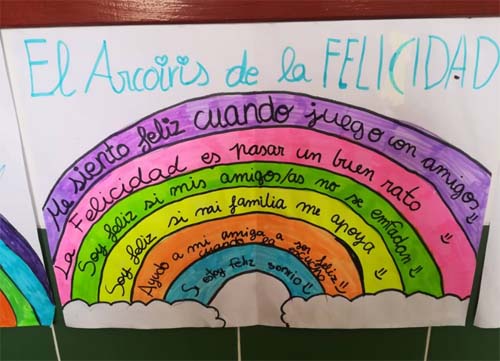 El Arcoiris de la FELICIDAD
Me siento feliz cuando juego con amigos
La Felicidad es pasar un buen rato
Soy feliz si mis amigos/as no se enfadan
Soy feliz si mi familia me apoya
Ayudo a mi amiga a ser feliz
cuando
Si estoy feliz sonrio